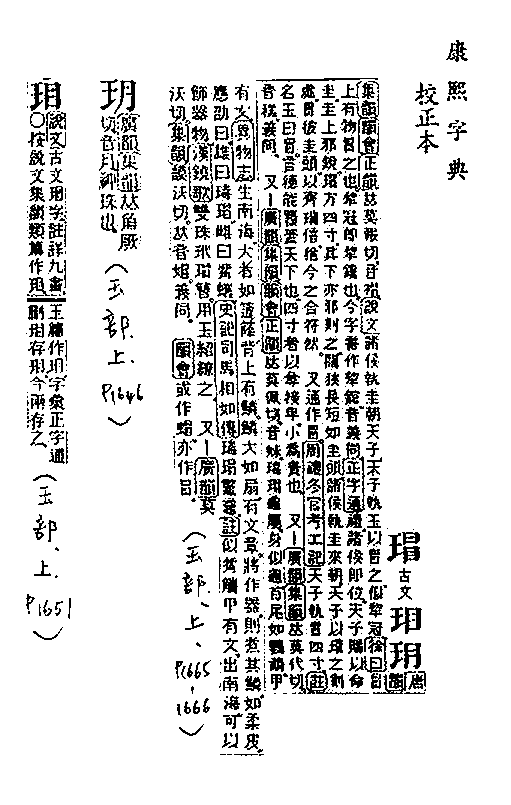 康熙字典
校正本
瑁 古文 玥 唐韻
集韻韻會正韻𠀤莫報切音帽說文諸侯執圭朝天子天子執玉以冒之似犂冠徐曰
上有物冒之也犂冠即犂鑱也今字書作犂錧音義同正字通禮諸侯即位天子賜以命
圭圭上邪銳瑁方四寸其下亦邪刻之闊狹長短如圭頭諸侯執圭來朝天子以瑁之刻
處冒彼圭頭以齊瑞信猶今之合符然 又通作冒周禮冬官考工記天子執冒四寸註
名玉曰冒言德能覆蓋天下也四寸者以尊接卑小爲貴也 又一廣韻集韻𠀤莫代切
音 義同 又一廣韻集韻韻會正韻𠀤莫佩切音妹瑇瑁龜屬身似龜首尾如鸚鵡甲
有文異物志生南海大者如籧篨背上有鱗鱗大如扇有文章將作器則煮其鱗如柔皮
應劭曰雄曰瑇瑁雌曰觜蠵史記司馬相如傳瑇瑁鼈黿註似觜蠵甲有文出南海可以
飾器物漢鐃歌雙珠玳瑁簪用玉紹繚之 又一廣韻莫
沃切集韻謨沃切𠀤音媢義同 韻會或作蝐亦作冒
(玉部、上、P1665-1666)
玥
廣韻集韻𠀤魚厥
切音月神珠也
(玉部、上、P1646)
珇
說文古文瑁字註詳九畫
○按說文集韻類篇作珇
玉篇作玥字彙正字通
(玉部、上、P1651)